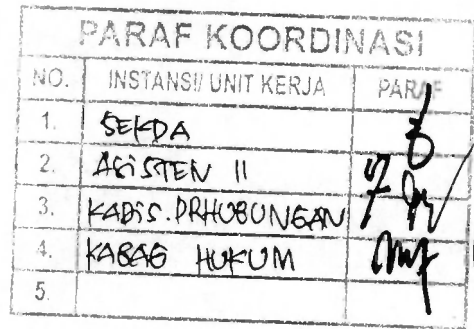 PARAF KOORDINASI
NO. INSTANSI/ UNIT KERJA PARAF
1. SEKDA
2. ASISTEN II
3. KADIS. PRHUBUNGAN
4. KABAG HUKUM
5.